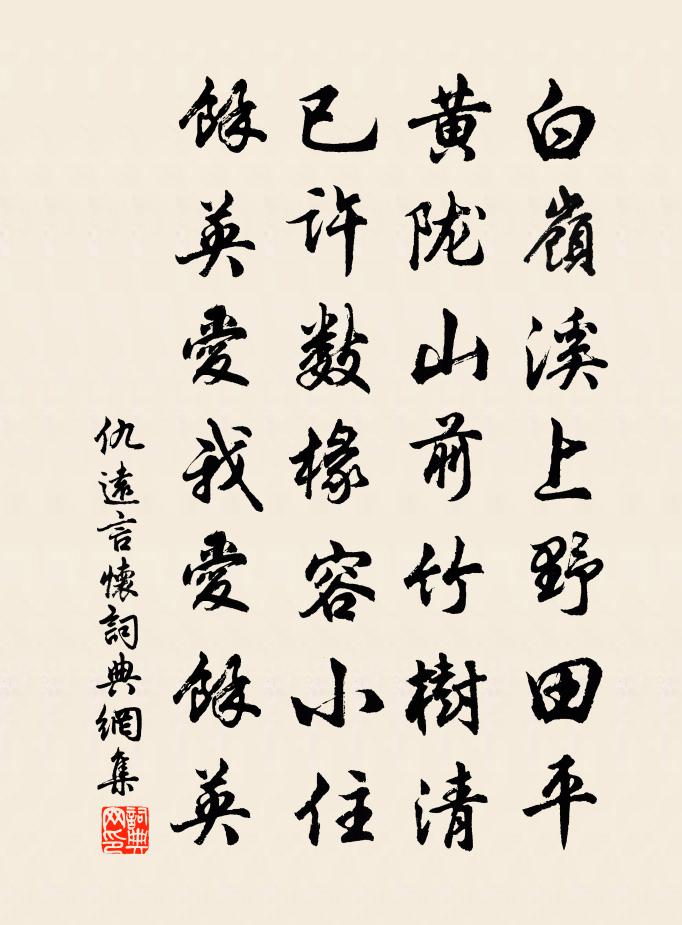 白嶺溪上野田平
黄陇山前竹樹清
已許數椽容小住
餘英愛我愛餘英
仇遠言懷詞典網集
詞典網印